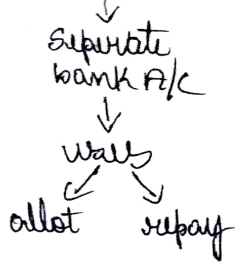 Seperate
bank A/C
ways
allot repay